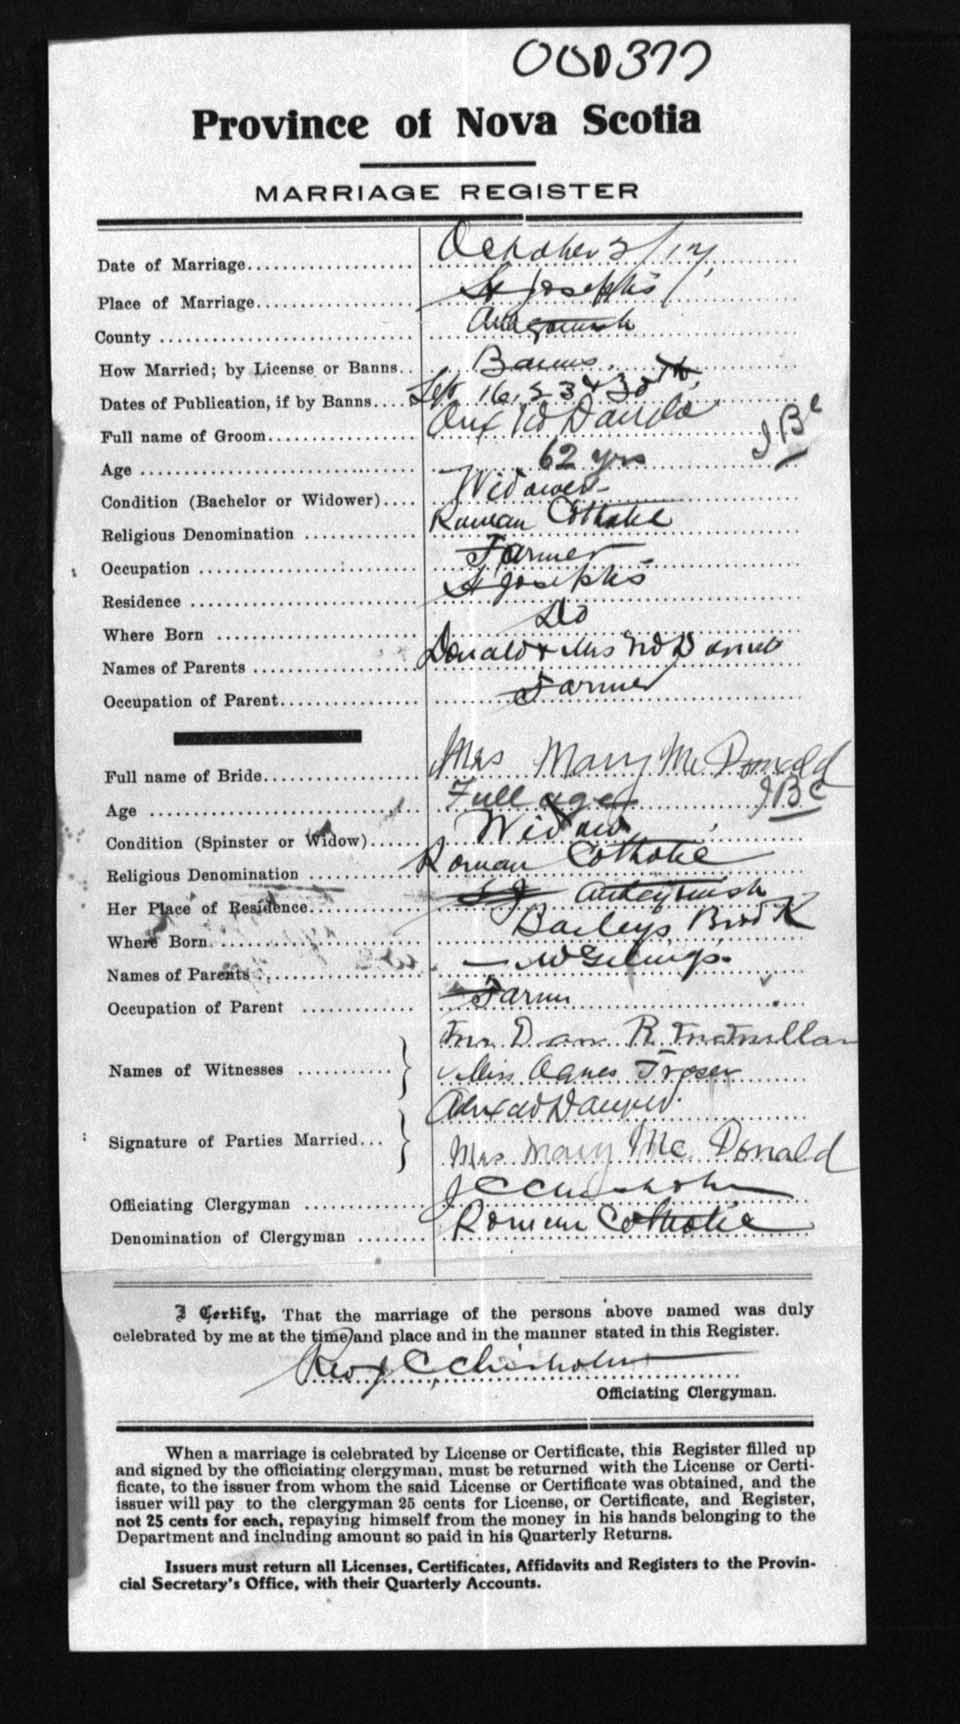 000377
Province of Nova Scotia
MARRIAGE REGISTER
Date of Marriage October 2/17,
Place of Marriage St Joseph's
County Antigonish
How Married; by License or Banns Banns.
Dates of Publication, if by Banns Sep 16, 23 & 30th,
Full name of Groom
Age 62 yrs
Condition (Bachelor or Widower) Widower
Religious Denomination Roman Catholic
Occupation Farmer
Residence St Joseph's
Where Born Do
Names of Parents Donald & Mrs
Occupation of Parent Farmer
Full name of Bride Mrs Mary Mc Donald
Age Full age
Condition (Spinster or Widow) Widow
Religious Denomination Roman Catholic
Her Place of Residence Antigonish
Where Born Bailey's Brook
Names of Parents
Occupation of Parent Farmer
Names of Witnesses Dan R.
Miss Agnes Fraser
Signature of Parties Married
Mrs Mary Mc Donald
Officiating Clergyman J C Chisholm
Denomination of Clergyman Roman Catholic
I Certify, That the marriage of the persons above named was duly
celebrated by me at the time and place and in the manner stated in this Register.
Rev J C Chisholm
Officiating Clergyman.
When a marriage is celebrated by License or Certificate, this Register filled up
and signed by the officiating clergyman, must be returned with the License or Certi-
ficate, to the issuer from whom the said License or Certificate was obtained, and the
issuer will pay to the clergyman 25 cents for License, or Certificate, and Register,
not 25 cents for each, repaying himself from the money in his hands belonging to the
Department and including amount so paid in his Quarterly Returns.
Issuers must return all Licenses, Certificates, Affidavits and Registers to the Provin-
cial Secretary's Office, with their Quarterly Accounts.